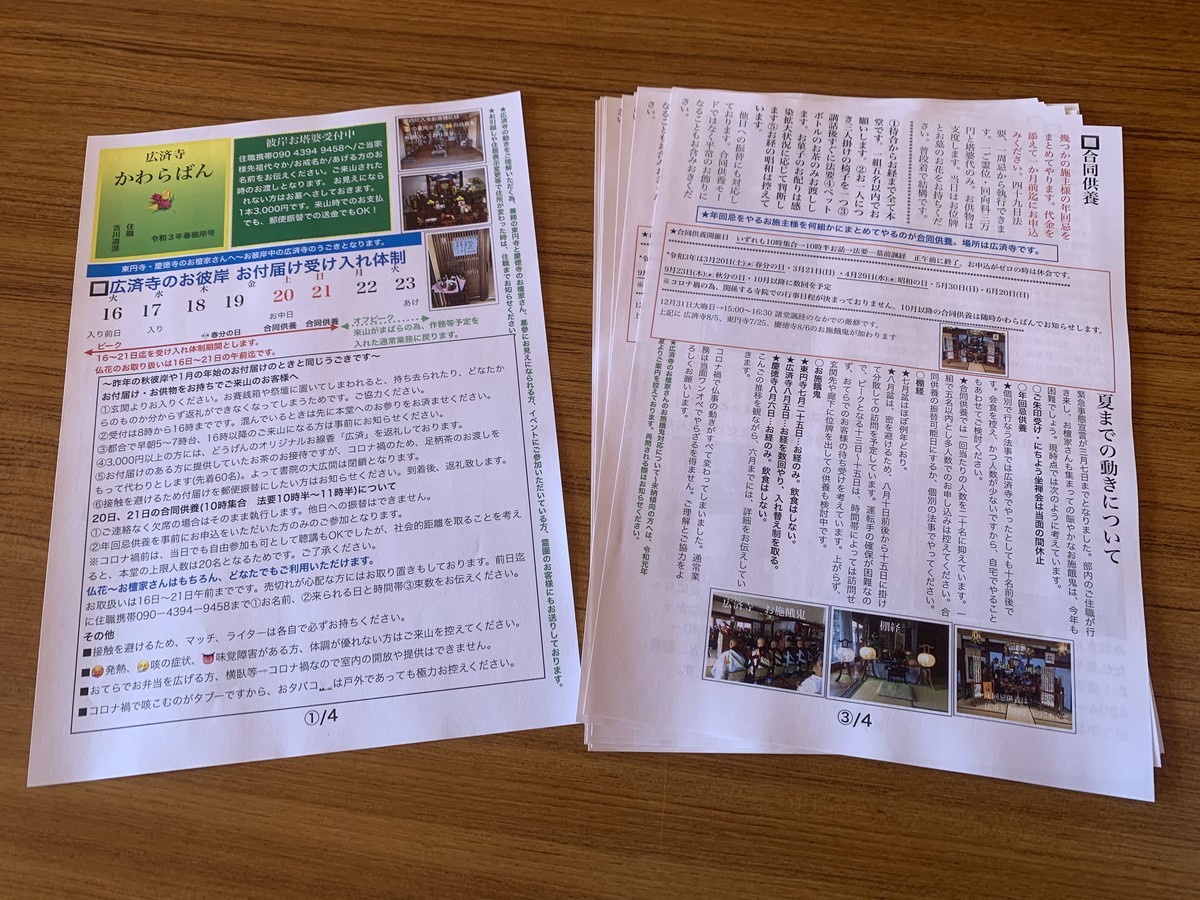 広済寺
かわらばん
住職
吉川道澄
令和3年春彼岸号
彼岸お塔婆受付中
住職携帯090 4394 9458へ/ご当家
様先祖代々か/お戒名か/あげる方のお
名前をお伝えください。ご来山された
時のお渡しとなります。お見えになら
れない方はお墓へさしておきます。
1本3,000円です。来山時でのお支払
でも、郵便振替での送金でもOK!
東円寺・慶徳寺のお檀家さんへ〜お彼岸中の広済寺のうごきとなります。
□広済寺のお彼岸 お付届け受け入れ体制
火 水 木 金 土 日 月 火
16 17 18 19 20 21 22 23
入り前日 入り 春分の日 お中日 あけ
合同供養 合同供養
ピーク
オフピーク
来山がまばらの為、作務等予定を
入れた通常業務に戻ります。
16〜21日迄を受け入れ体制期間とします。
仏花のお取り扱いは16日〜21日の午前迄です。
〜昨年の秋彼岸や1月の年始のお付届けのときと同じうごきです〜
お付届け・お供物をお持ちでご来山のお客様へ
①玄関よりお入りください。お賽銭箱や祭壇に置いてしまわれると、持ち去られたり、どなたか
らのものか分からず返礼ができなくなってしまうためです。ご協力ください。
②受付は8時から16時までです。混んでいるときは先に本堂へのお参りをお済ませください。
③都合で早朝5〜7時台、16時以降のご来山になる方は事前にお知らせください。
④3,000円以上の方には、どうげんのオリジナルお線香「広済」を返礼しております。
⑤お付届けのある方に提供していたお茶のお接待ですが、コロナ禍のため、足柄茶のお渡しを
もって代わりとします(先着60名)。よって書院の大広間は閉鎖となります。
⑥接触を避けるため付届けを郵便振替にしたい方はお知らせください。到着後、返礼致します。
20日、21日の合同供養(10時集合 法要10時半〜11時半)について
①ご連絡なく欠席の場合はそのまま執行します。他日への振替はできません。
②年回忌供養を事前にお申込をいただいた方のみのご参加となります。
※コロナ禍前は、当日でも自由参加も可として聴講もOKでしたが、社会的距離を取ることを考え
ると、本堂の上限人数は20名となるためです。ご了承ください。
仏花〜お檀家さんはもちろん、どなたでもご利用いただけます。
お取扱いは16日〜21日午前までです。売切れが心配な方にはお取り置きもしております。前日迄
に住職携帯090-4394-9458まで①お名前、②来られる日と時間帯③束数をお伝えください。
その他
■接触を避けるため、マッチ、ライターは各自で必ずお持ちください。
■発熱、咳の症状、味覚障害がある方、体調が優れない方はご来山を控えてください。
■おてらでお弁当を広げる方、横臥等ーコロナ禍なので室内の開放や提供はできません。
■コロナ禍で咳こむのがタブーですから、おタバコは戸外であっても極力お控えください。
①/4
□合同供養
幾つかの施主様の年回忌を
まとめてやります。代金を
添えて一か月前迄にお申込
みください。四十九日法
要、一周忌から執行できま
す。一霊位一回向料三万
円と塔婆代のみ。お供物は
支度します。当日はお位牌
とお墓のお花をお持ちくだ
さい。普段着で結構です。
①待合からお経まで全て本
堂です。一組五名以内でお
願いします。②お一人につ
き三人掛けの椅子を一つ③
講話後すぐに法要④ペット
ボトルのお茶のみお渡しし
ます。お菓子のお配りは感
染拡大状況に応じて判断し
ます⑤お経の唱和は控えて
います。
他日への振替にも対応し
ております。合同供養モー
ドではなく平常のお飾りに
なることもお含みおきくだ
さい。
★年回忌をやるお施主様を何組かにまとめてやるのが合同供養。場所は広済寺です。
★合同供養開催日 いずれも10時集合→10時半お話→法要→墓前諷経 正午前に終了。お申込がゼロの時は休会です。
令和三年は3月20日(土)春分の日・3月21日(日)・4月29日(木)昭和の日・5月30日(日)・6月20日(日)
9月23日(木)秋分の日・10月以降に数回を予定
※コロナ禍の為、関係する寺院での行事日程が決まっておりません。10月以降の合同供養は随時かわらばんでお知らせします。
12月31日大晦日→15:00〜16:30 諸堂諷経のなかでの厳修です。
上記に 広済寺8/5、東円寺7/25、慶徳寺8/6のお施餓鬼が加わります
夏までの動きについて
緊急事態宣言が三月七日までとなりました。部内のご住職が行
き来し、お檀家さんも集まっての賑やかなお施餓鬼は、今年も
困難でしょう。現時点では次のように考えています。
〇ご朱印受け・にちよう坐禅会は当面の間休止
〇年回忌供養
★個別で行なう法事では広済寺でやったとしても十名前後で
す。会食を控え、かつ人数が少ないですから、自宅でやること
もあわせてご検討ください。
★合同供養では一回当たりの人数を二十名に抑えています。一
組で五名以内とし多人数でのお申し込みは控えてください。合
同供養の振替可能日にするか、個別の法事でやってください。
〇棚経
★七月盆はほぼ例年どおり。
★八月盆は、密を避けるため、八月十日前後から十五日に掛け
て分散しての訪問を予定しています。運転手の確保が困難なの
で、ピークとなる十三日〜十五日は、時間帯によっては訪問せ
ず、おてらでのお客様の待ち受けを考えています。上がらず、
玄関先や廊下に位牌を出しての供養も検討中です。
〇お施餓鬼
★東円寺七月二十五日…お経のみ。飲食はしない。
★広済寺八月五日…お経を数回やり、入れ替え制を取る。
★慶徳寺八月六日…お経のみ。飲食はしない。
こんごの推移を観ながら、六月までには、詳細をお伝えしてい
コロナ禍で仏事の動きがすべて変わってしまいました。通常業
務は当面ワンオペでやらざるを得ません。ご理解とご協力をよ
ろしくお願いします。
広済寺 お施餓鬼
棚経
③/4